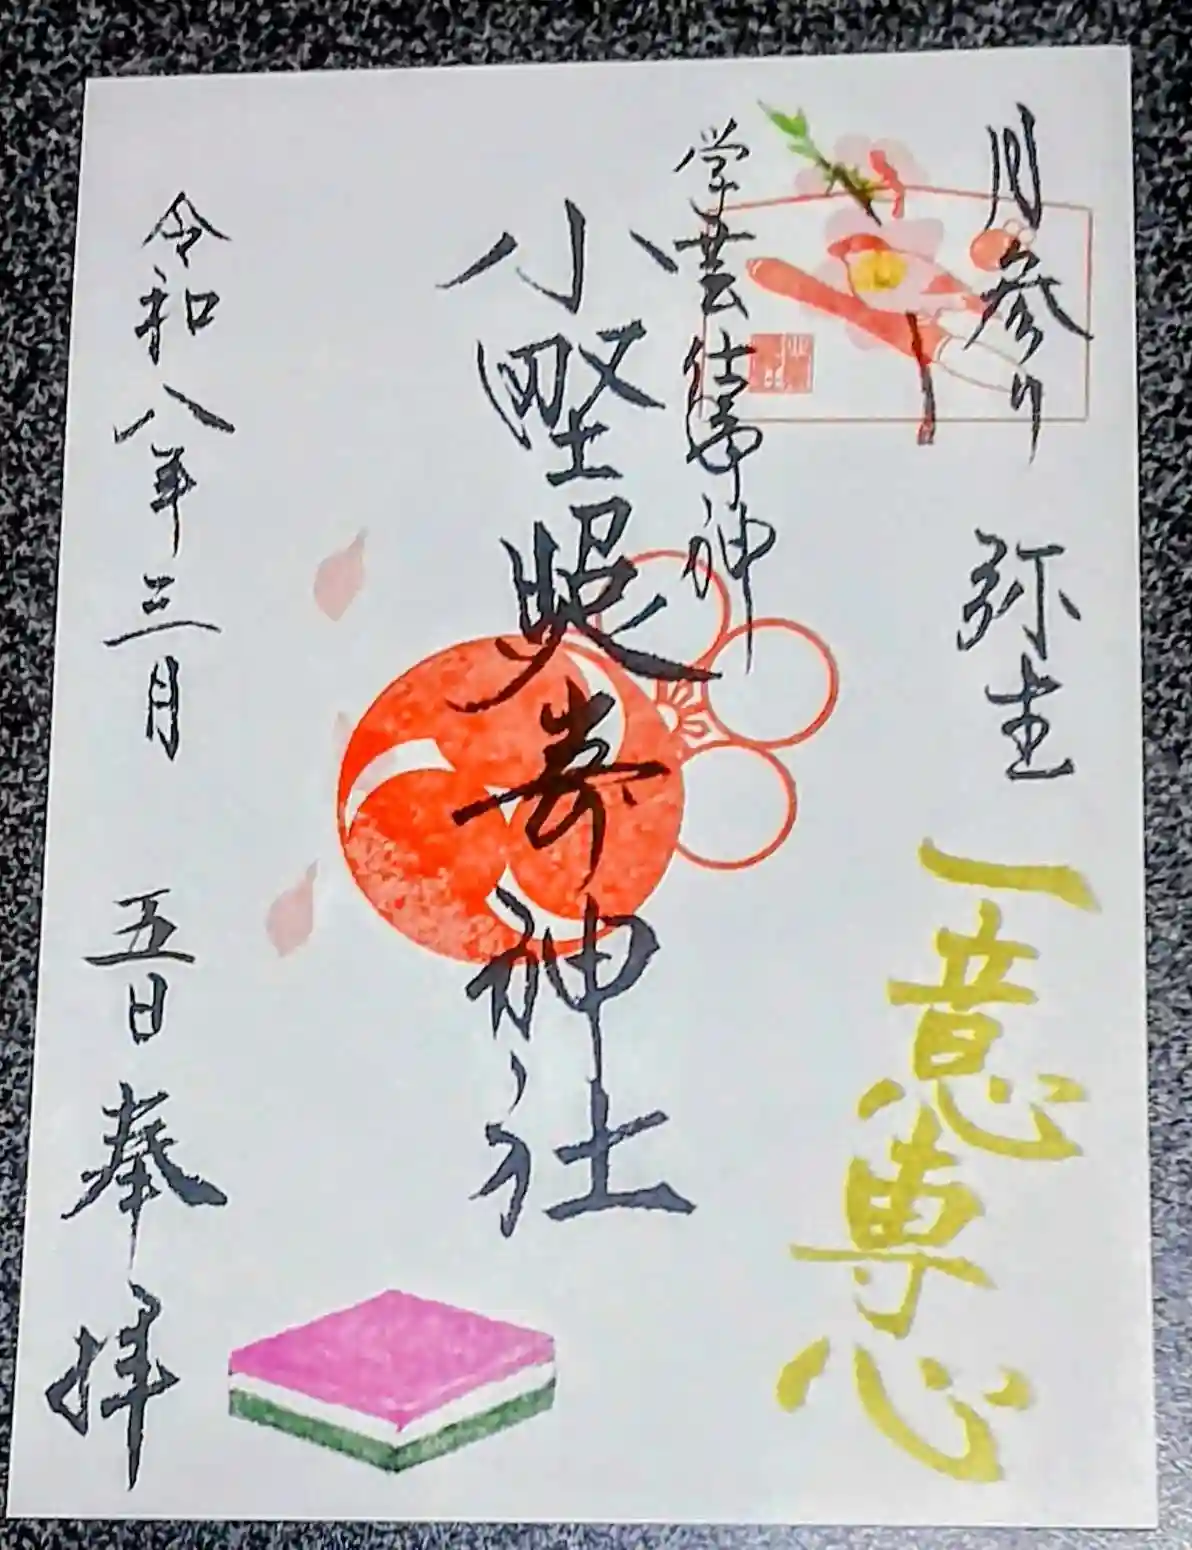 月参り 弥生
一意専心
学芸仕事神
小野照崎神社
令和八年三月 五日奉拝